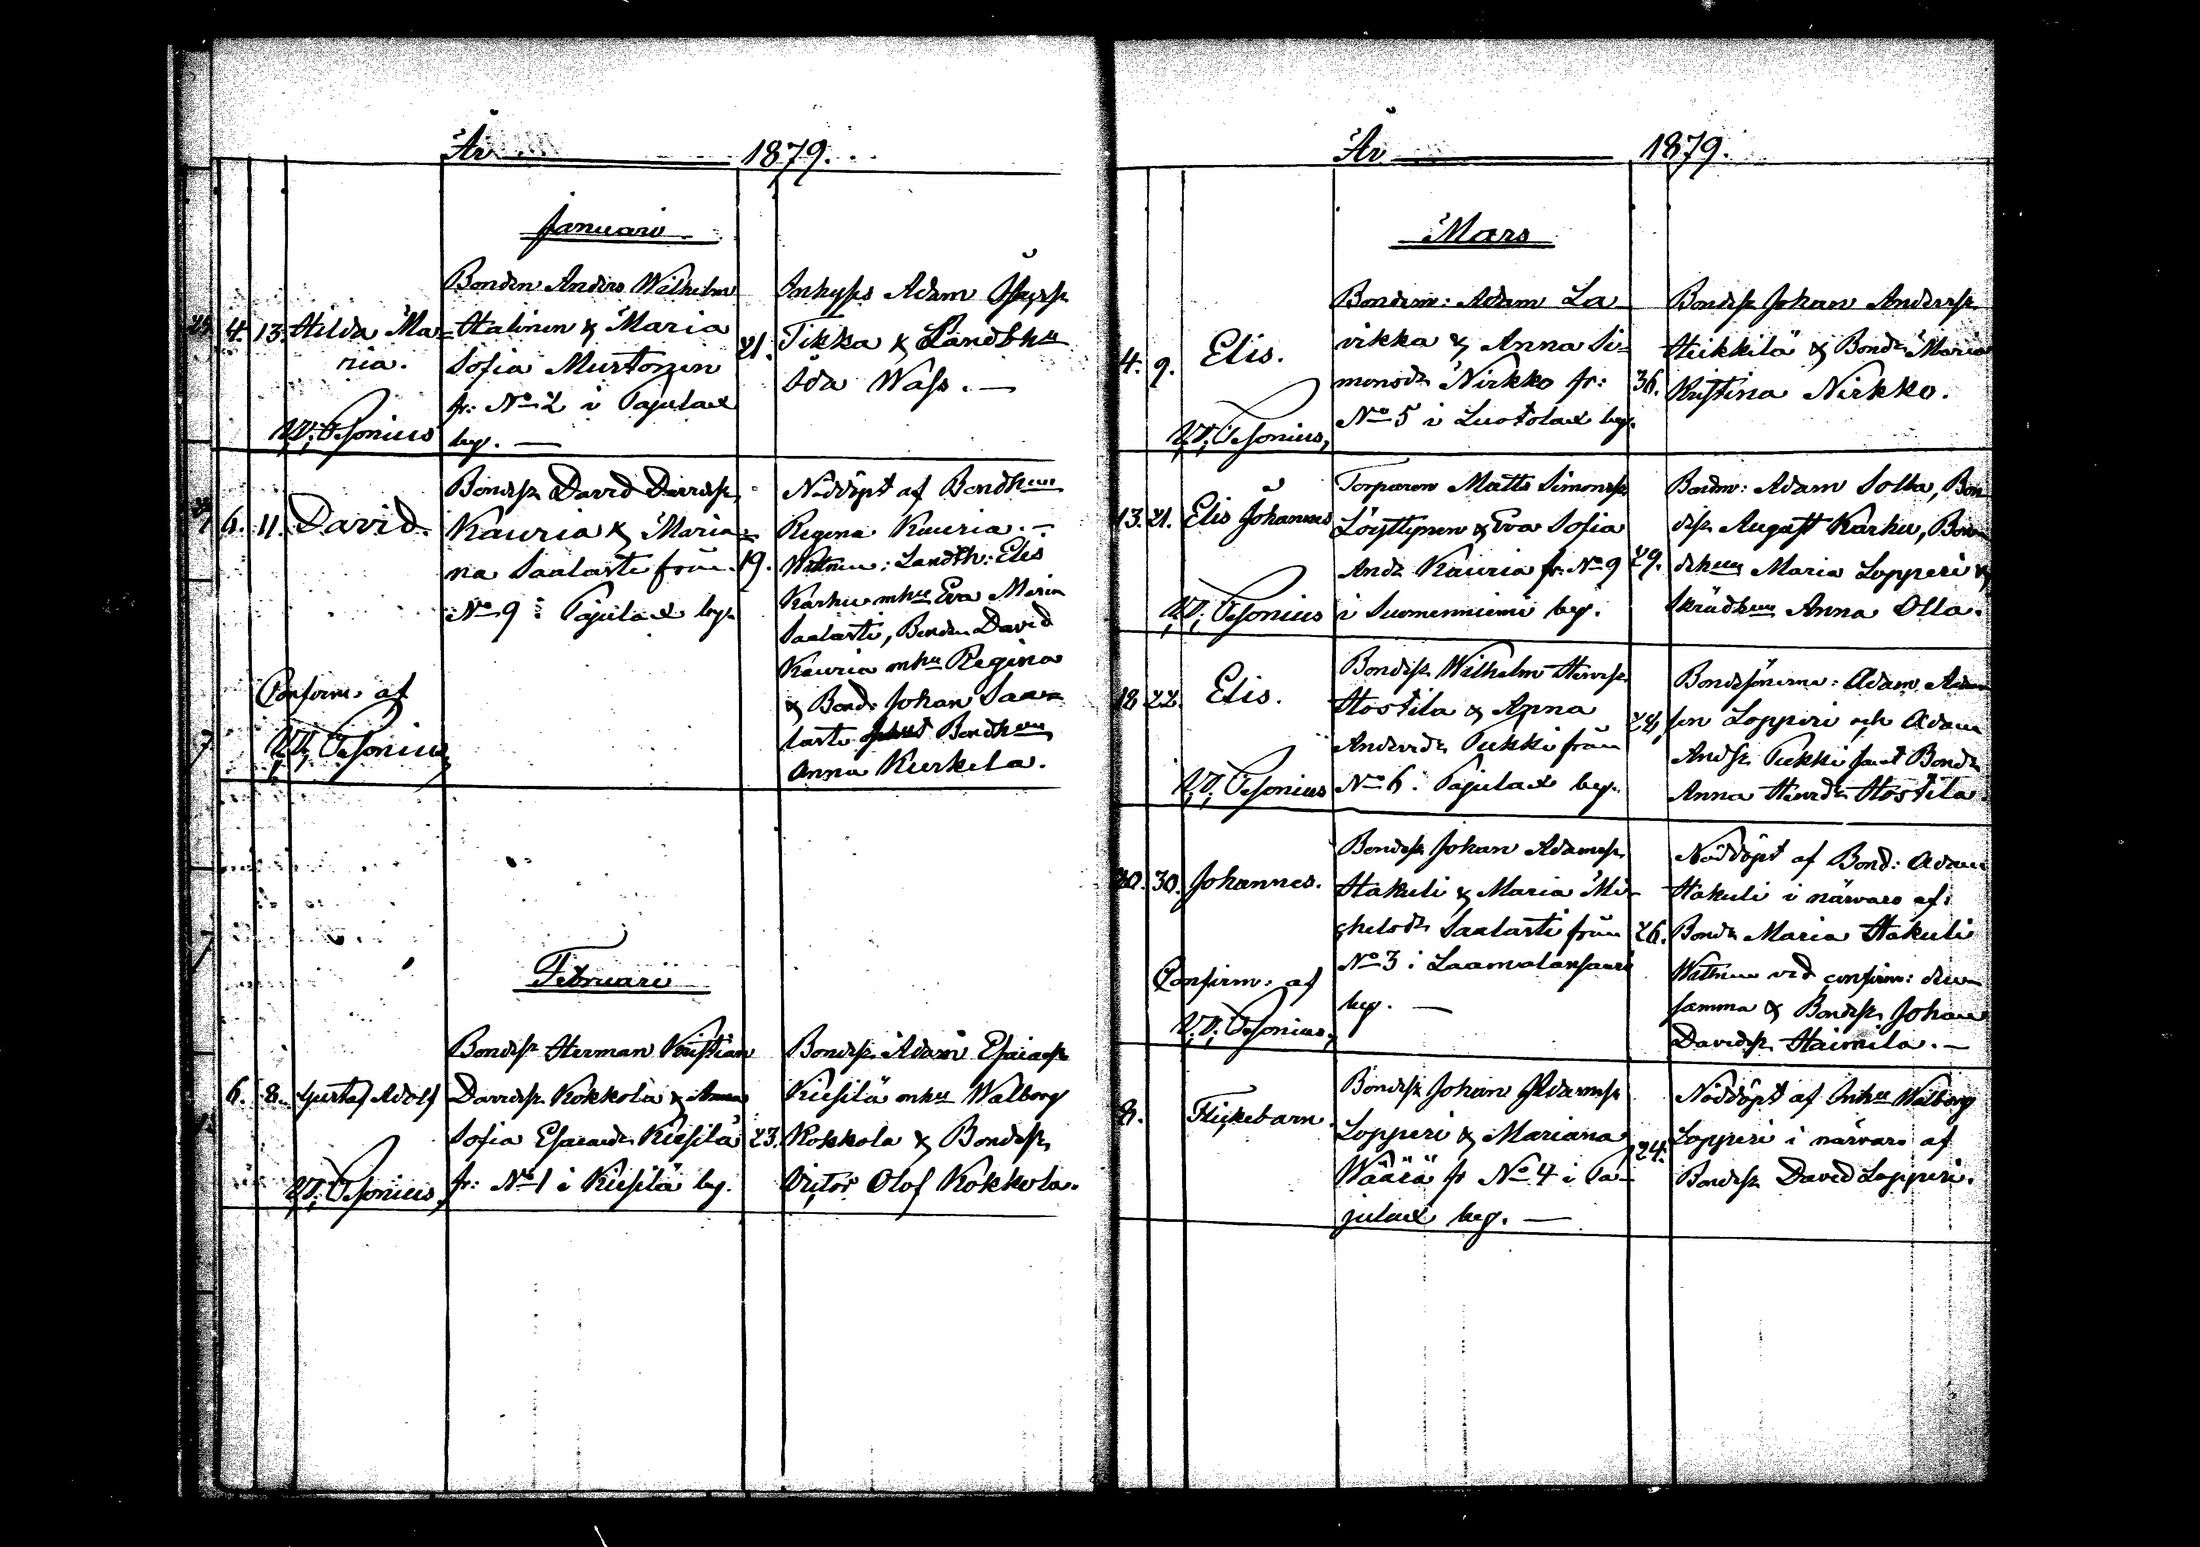 År 1879.
Januari
Bonden Anders Wilhelm
4. 13. Hilda Ma-
ria.
Halinen & Maria
Sofia Murtonen
fr: No 2 i Pajulax
by. —
21.
Inhyses Adam
Tikka & Landbhu
Ida Wass. —
6. 11. David.
Bondes. David Davids.
Kauria & Maria-
na Saalasti från
No 9 i Pajulax by.
19.
Nöddöpt af Bondhuu
Regina Kauria. —
Wittnen: Landth: Elis
Karhu mhu Eva Maria
Saalasti, Bonden David
Kauria mhu Regina
& Bond. Johan Saa-
lasti Bondhuu
Anna Kurkela.
Confirm. af
Februari
6. 8. Gustaf Adolf
Bondes. Herman Kristian
Davids. Kokkola & Anna
Sofia Esaiasdr Kiesilä
fr: No 1 i Kiesilä by.
23.
Bondes. Adam Esaias.
Kiesilä mhu Walborg
Kokkola & Bondes.
Victor Olof Kokkola.
År 1879.
Mars
4. 9. Elis.
Bondem: Adam La
vikka & Anna Si-
monsdr Nirkko fr:
No 5 i Luotolax by.
36.
Bondes. Johan Anders.
Heikkilä & Bondr Maria
Kristina Nirkko.
13. 21. Elis Johannes
Torparen Matts Simons.
Löyttynen & Eva Sofia
Andr Kauria fr. No 9
i Suomenniemi by.
29.
Bondm: Adam Solla, Bon
des. August Karhu, Bon
dehuu Maria Lopperi &
Skrädhuu Anna Olla.
18. 22. Elis.
Bondes. Wilhelm Henrs.
Hostila & Anna
Andersdr Pukki från
No 6. Pajulax by.
24.
Bondesönerna: Adam Adam
sen Lopperi och Adam
Ands. Pukki samt Bondr
Anna Henrdr Hostila.
30. 30. Johannes.
Bondes. Johan Adams.
Hakuli & Maria Mi-
chelsdr Saalasti från
No 3 i Laamalansaari
by. —
26.
Nöddöpt af Bond: Adam
Hakuli i närvaro af
Bondr Maria Hakuli
Wittnen vid confirm: den
samma & Bondes. Johan
Davids. Haimila. —
Confirm. af
8. Flickebarn.
Bondes. Johan Adams.
Lopperi & Mariana
Wäärä fr No 4 i Pa-
julax by. —
24.
Nöddöpt af Inhu Walborg
Lopperi i närvaro af
Bondes. David Lopperi.